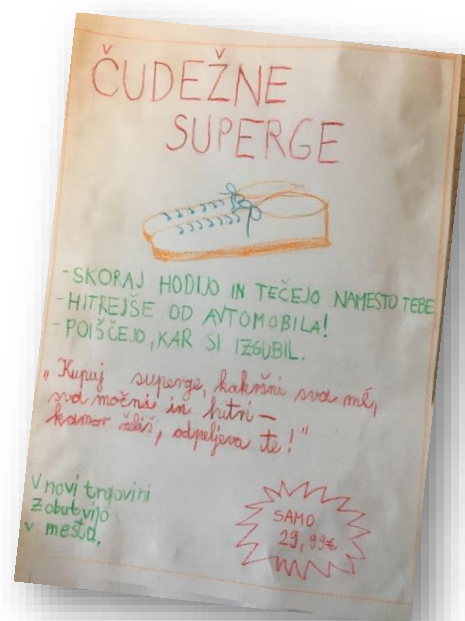 ČUDEŽNE
SUPERGE
- SKORAJ HODIJO IN TEČEJO NAMESTO TEBE
- HITREJŠE OD AVTOMOBILA!
- POIŠČEJO, KAR SI IZGUBIL.
"Kupuj superge, kakršni sva mé,
sva močni in hitri –
kamor želiš, odpeljeva te!"
V novi trgovini
z obutvijo
v mestu.
SAMO
29,99€